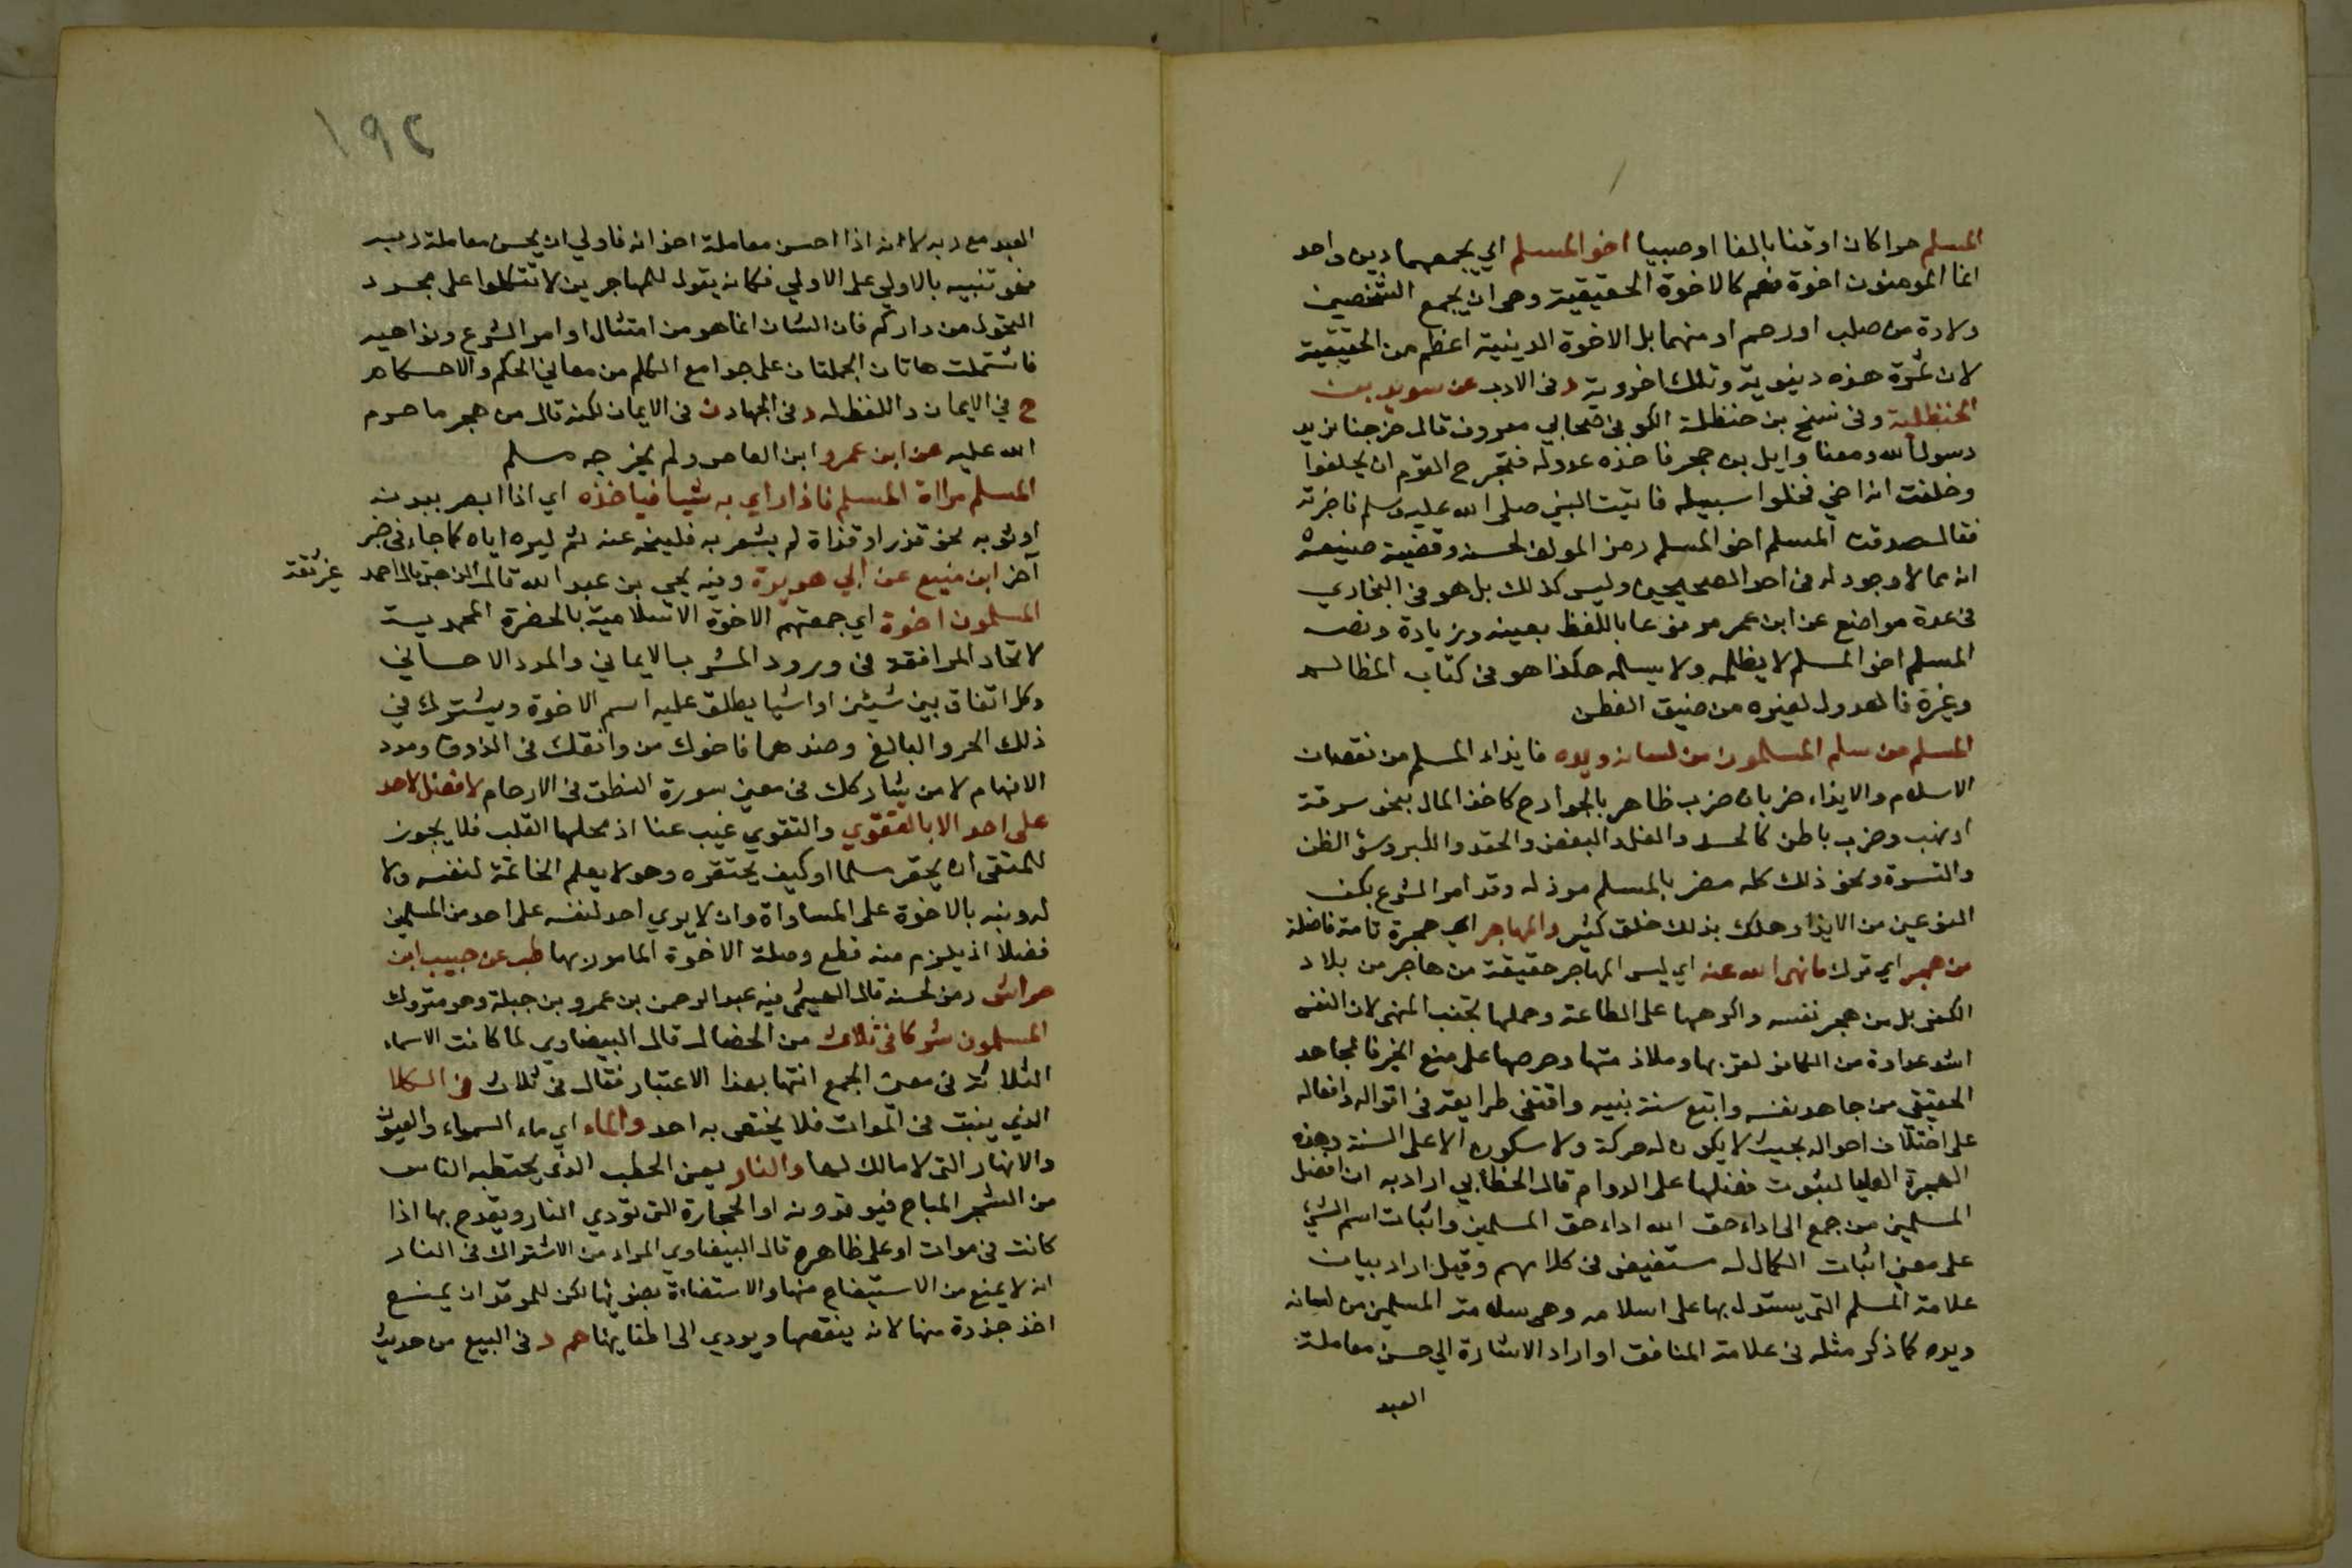 المسلم حرا كان او قنا بالغا او صبيا اخو المسلم اي يجمعهما دين واحد
انما المومنون اخوة فهم كالاخوة الحقيقية وهي ان يجمع الشخصين
ولادة من صلب او رحم او منهما بل الاخوة الدينية اعظم من الحقيقية
لان ثمرة هذه دنيوية وتلك اخروية د في الادب عن سويد بن
الحنظلية وفي نسخ بن حنظلة الكوفي صحابي معروف قال خرجنا نريد
رسول الله ومعنا وايل بن حجر فاخذه عدو له فتحرج القوم ان يحلفوا
وحلفت انه اخي فخلوا سبيله فاتيت النبي صلى الله عليه وسلم فاخبرته
فقال صدقت المسلم اخو المسلم رمز المولف لحسنه وقضية صنيعه
انه مما لا وجود له في احد الصحيحين وليس كذلك بل هو في البخاري
في عدة مواضع عن ابن عمر مرفوعا باللفظ بعينه وزيادة ونصه
المسلم اخو المسلم لا يظلمه ولا يسلمه هكذا هو في كتاب المظالم
وغيرة فالعدول لغيره من ضيق العطن
المسلم من سلم المسلمون من لسانه ويده فايذاء المسلم من نقصان
الاسلام والايذاء ضربان ضرب ظاهر بالجوارح كاخذ المال بنحو سرقة
او نهب وضرب باطن كالحسد والغل والبغض والحقد والكبر وسوء الظن
والقسوة ونحو ذلك كله مضر بالمسلم موذ له وقد امر الشرع بكف
النوعين من الايذاء وهلك بذلك خلق كثير والمهاجر اي هجرة تامة فاضلة
من هجر اي ترك ما نهى الله عنه اي ليس المهاجر حقيقة من هاجر من بلاد
الكفر بل من هجر نفسه واكرهها على الطاعة وحملها تجنب المنهي لان النفس
اشد عداوة من الكافر لقربها وملازمتها وحرصها على منع الخير فالمجاهد
الحقيقي من جاهد نفسه واتبع سنة نبيه واقتفى طرايقه في اقواله وافعاله
على اختلاف احواله بحيث لا يكون له حركة ولا سكون الا على السنة وهذه
الهجرة العليا لثبوت فضلها على الدوام قال الخطابي اراد به ان افضل
المسلمين من جمع الى اداء حق الله اداء حق المسلمين واثبات اسم الشيء
على معنى اثبات الكمال له مستفيض في كلامهم وقيل اراد بيان
علامة المسلم التي يستدل بها على اسلامه وهي سلامة المسلمين من لسانه
ويده كما ذكر مثله في علامة المنافق او اراد الاشارة الى حسن معاملة
العبد
١٩٢
العبد مع ربه لانه اذا احسن معاملة اخوانه فاولى ان يحسن معاملة ربه
فهو تنبيه بالاولى على الاولى فكانه يقول للمهاجرين لا تتكلوا على مجرد
التحول من داركم فان الشان انما هو من امتثال اوامر الشرع ونواهيه
فاشتملت هاتان الجملتان على جوامع الكلم من معاني الحكم والاحكام
خ في الايمان واللفظ له د في الجهاد ن في الايمان لكنه قال من هجر ما حرم
الله عليه عن ابن عمرو ابن العاص ولم يخرجه مسلم
المسلم مراة المسلم فاذا راي به شيا فياخذه اي اذا ابصر ببدنه
او ثوبه نحو قذر او قذاة لم يشعر به فلينحه عنه ثم ليره اياه كما جاء في خبر
آخر ابن منيع عن ابي هريرة وفيه يحي بن عبد الله قال الذهبي قال احمد غير ثقة
المسلمون اخوة اي جمعتهم الاخوة الاسلامية بالحضرة المحمدية
لاتحاد الموافقة في ورود المشرب الايماني والمدد الاحساني
وكل اتفاق بين شيئين او اشيا يطلق عليه اسم الاخوة ويشترك في
ذلك الحر والبالغ وضدهما فاخوك من وافقك في الذوق ومدد
الافهام لا من يشاركك في معنى سورة النطق في الارحام لا فضل لاحد
على احد الا بالتقوي والتقوي غيب عنا اذ محلها القلب فلا يجوز
للمتقي ان يحقر مسلما او كيف يحتقره وهو لا يعلم الخاتمة لنفسه ولا
له ونبه بالاخوة على المساواة وان لا يري احد لنفسه على احد من المسلمين
فضلا اذ يلزم منه قطع وصلة الاخوة المامور بها طب عن حبيب ابن
حراش رمز لحسنه قال الهيثمي فيه عبد الرحمن بن عمرو بن جبلة وهو متروك
المسلمون شركا في ثلاث من الخصال قال البيضاوي لما كانت الاسماء
الثلاثة في معنى الجمع انثها بهذا الاعتبار فقال في ثلاث في الكلا
الذي ينبت في الموات فلا يختص به احد والماء اي ماء السماء والعيون
والانهار التي لا مالك لها والنار يعني الحطب الذي يحتطبه الناس
من الشجر المباح فيوقدونه او الحجارة التي تؤدي النار ويقدح بها اذا
كانت في موات او على ظاهره قال البيضاوي المراد من الاشتراك في النار
انه لا يمنع من الاستيضاح منها والاستضاءة بضوئها لكن للموقد ان يمنع
اخذ جذوة منها لانه ينقصها ويودي الى اطفايها حم د في البيع من حديث